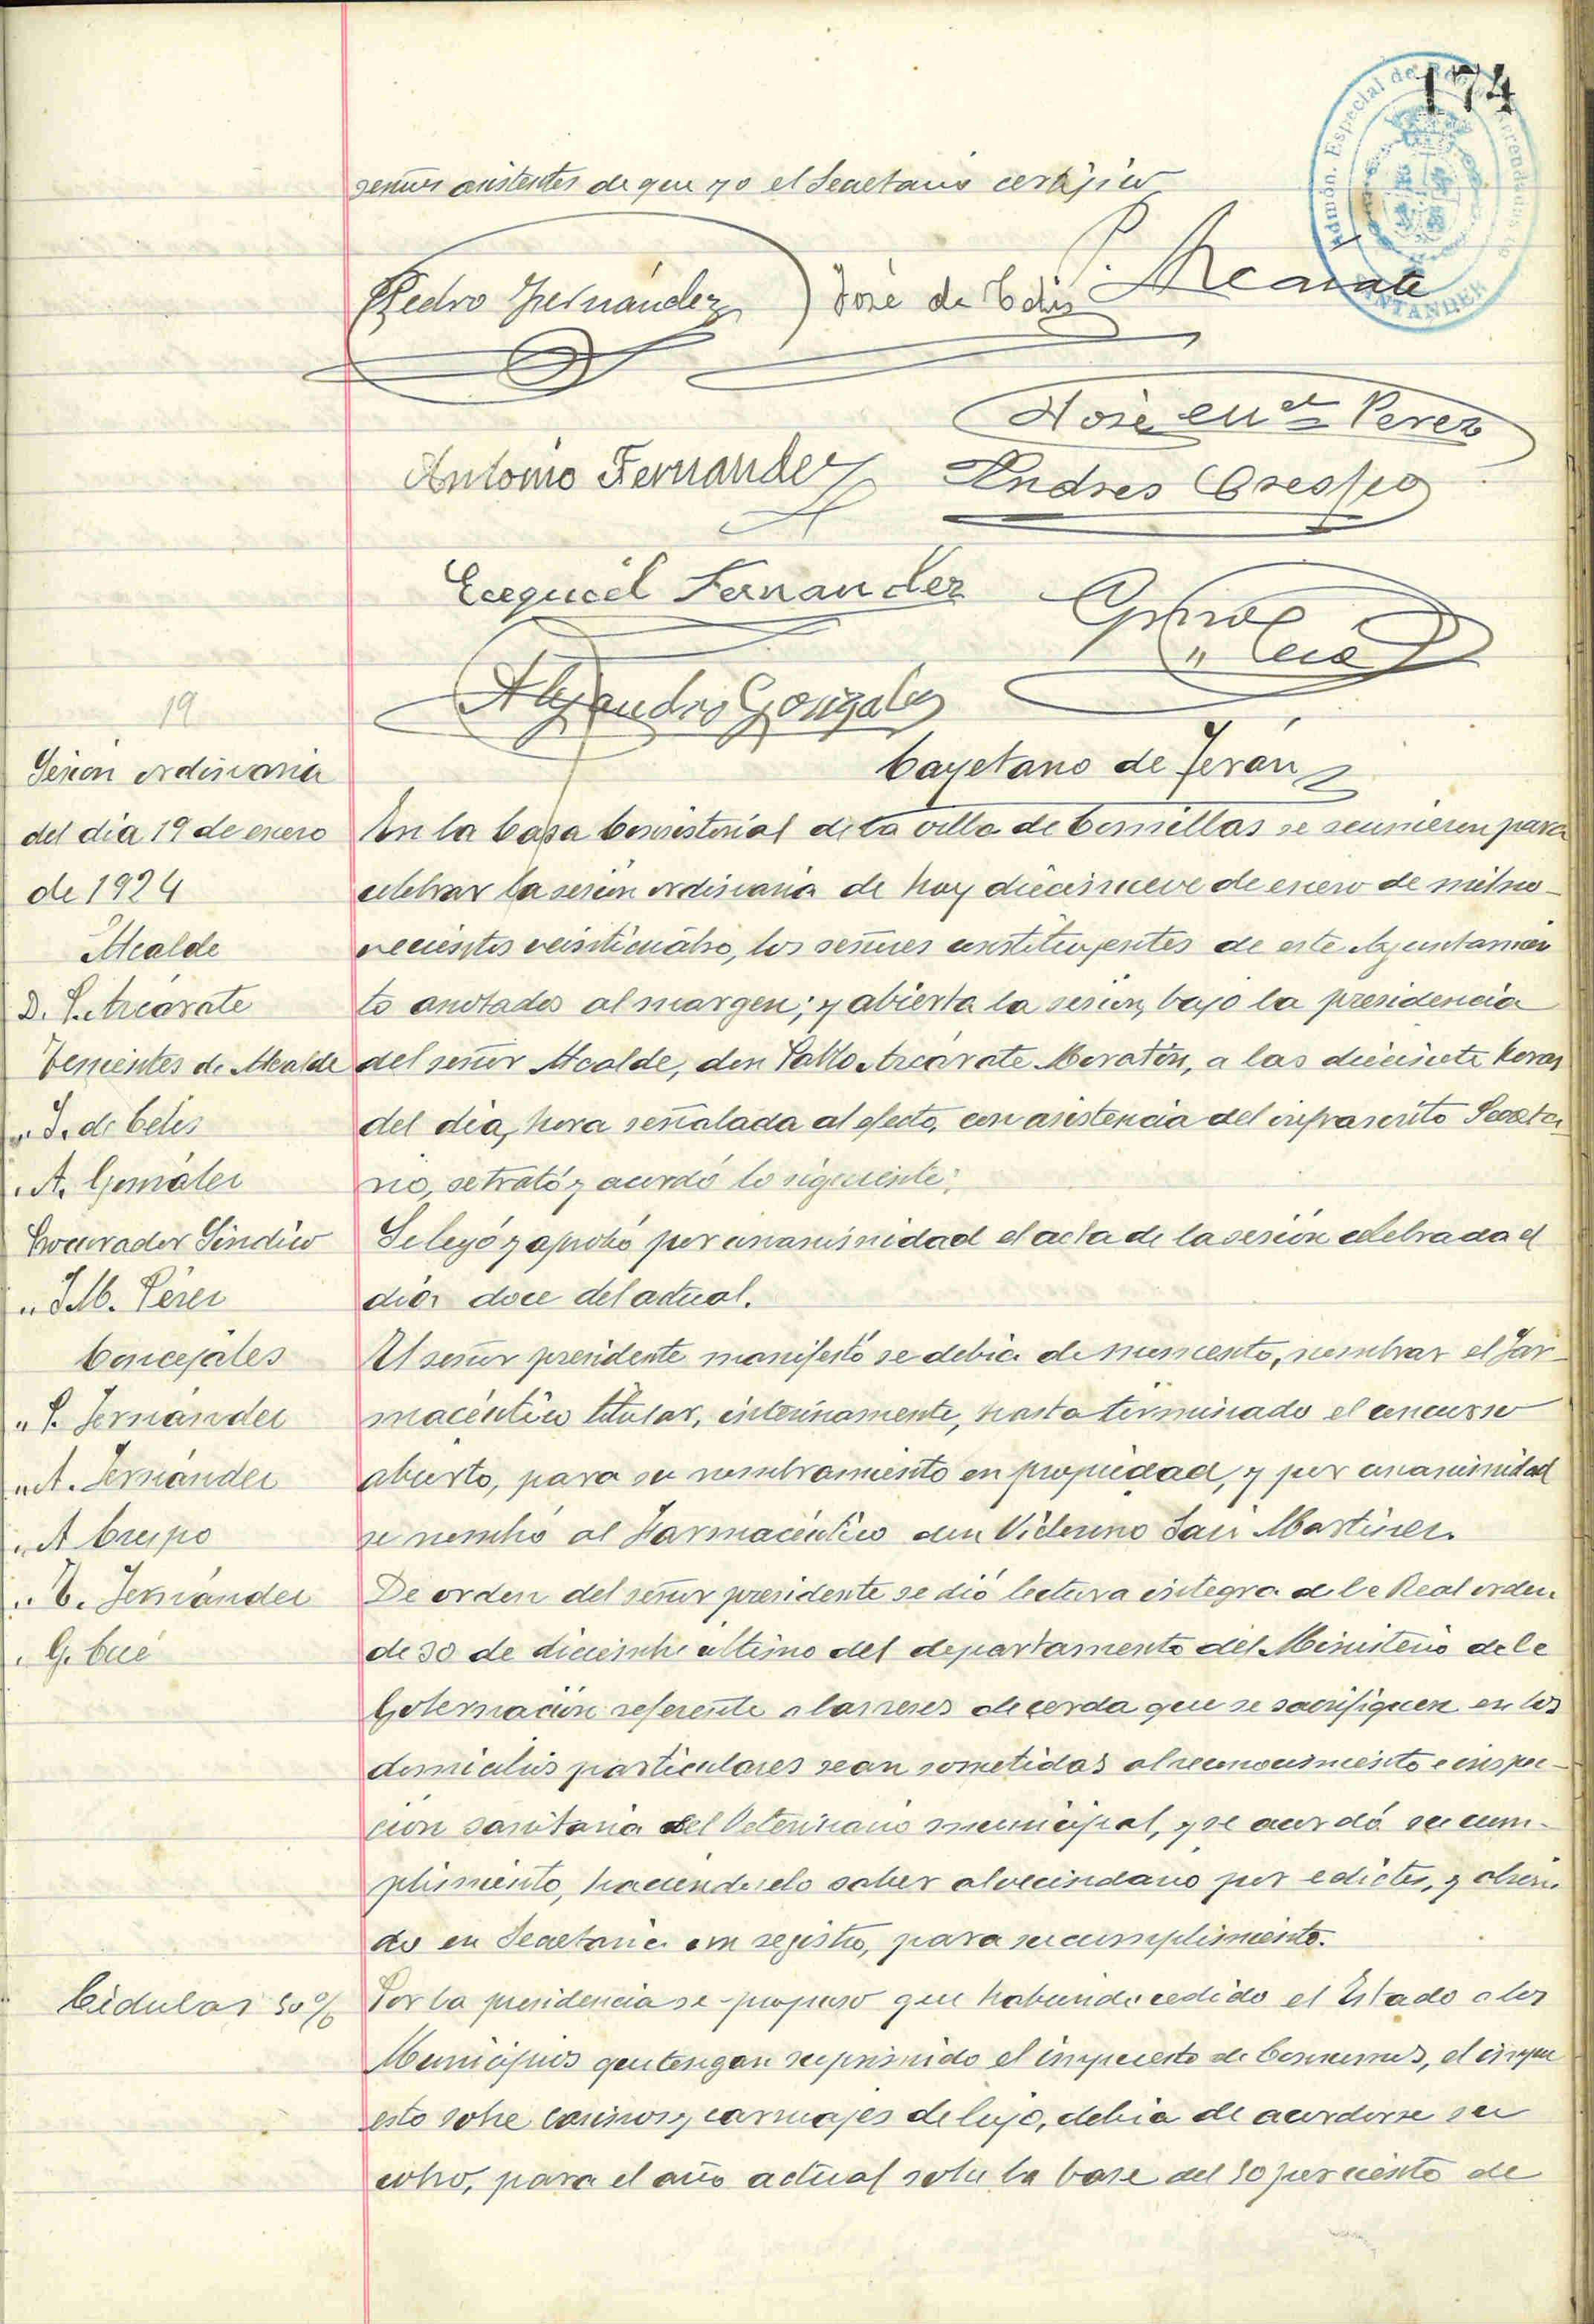 174
Admón. Especial de Rentas Arrendadas de
SANTANDER
señores asistentes de que yo el Secretario certifico
P. Azcarate
Pedro Fernández José de Celis
José Mª Perez
Antonio Fernandez Andres Crespo
Ezequiel Fernandez G. Cué
Alejandro Gonzalez
Cayetano de Terán
19
Sesion ordinaria
del dia 19 de enero
de 1924
Alcalde
D. P. Azcárate
Tenientes de Alcalde
" J. de Celis
" A. González
Procurador Sindico
" J. M. Pérez
Concejales
" P. Fernández
" A. Fernández
" A Crespo
" E. Fernández
" G. Cué
En la Casa Consistorial de la villa de Comillas se reunieron para
celebrar la sesión ordinaria de hoy diecinueve de enero de mil no-
vecientos veinticuatro, los señores constituyentes de este Ayuntamien
to anotados al margen; y abierta la sesion, bajo la presidencia
del señor Alcalde, don Pablo Azcárate Moratón, a las diecisiete horas
del dia, hora señalada al efecto, con asistencia del infrascrito Secreta-
rio, se trató y acordó lo siguiente:
Se leyó y aprobó por unanimidad el acta de la sesión celebrada el
dia doce del actual.
El señor presidente manifestó se debia de momento, nombrar el Far-
macéutico titular, interinamente, hasta terminado el concurso
abierto, para su nombramiento en propiedad, y por unanimidad
se nombró al Farmacéutico don San Martinez.
De orden del señor presidente se dió lectura integra de la Real orden
de 30 de diciembre último del departamento del Ministerio de la
Gobernación referente a las reses de cerda que se sacrifiquen en los
domicilios particulares sean sometidas al reconocimiento e inspec-
ción sanitaria del Veterinario municipal, y se acordó su cum-
plimiento, haciendoselo saber al vecindario por edictos, y abrien-
do en Secretaria un registro, para su cumplimiento.
Cédulas 50%
Por la presidencia se propuso que habiendo cedido el Estado a los
Municipios que tengan suprimido el impuesto de Consumos, el impu
esto sobre casinos y carruajes de lujo, debia de acordarse su
cobro, para el año actual sobre la base del 50 por ciento de